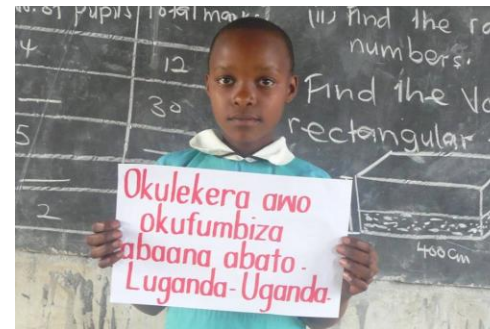 No. of pupils Total mark
4 12
30
5
2
(ii) Find the
numbers.
Find the
rectangular
400cm
Okulekera awo
okufumbiza
abaana abato.
Luganda-Uganda-